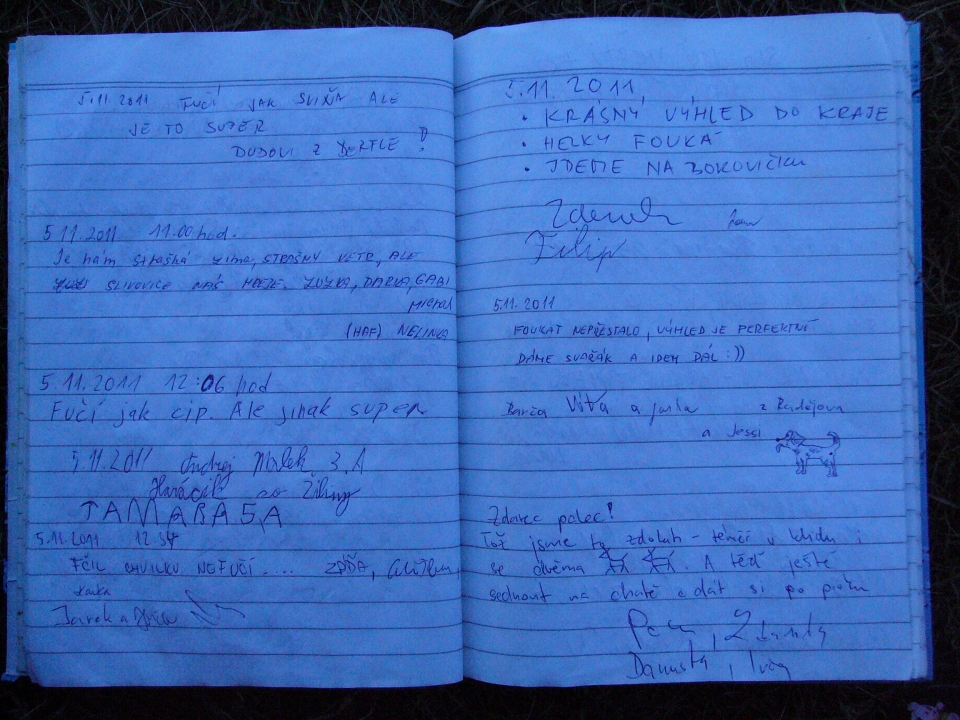 5.11.2011 FUČÍ JAK SVIŇA ALE
JE TO SUPER
DUDOVI Z BERTLE !
5.11.2011 11.00 hod.
Je nám strašná zima, STRAŠNÝ VÍTR, ALE
SLIVOVICE NÁS HŘEJE. ZUZKA, DARKA, GABI
Michal
(HAF) NELINKA
5.11.2011 12:06 hod
Fučí jak cip. Ale jinak super
5.11.2011 Ondrej Malek 3.A
Horáčik zo Žiliny
TAMARA 5,A
5.11.2011 12:34
FČIL CHVILKU NEFUČÍ....
Jarek a
5.11.2011
• KRÁSNÝ VÝHLED DO KRAJE
• HEZKY FOUKÁ
• JDEME NA BOROVIČKU
Zdenek
Filip
5.11.2011
FOUKAT NEPŘESTALO, VÝHLED JE PERFEKTNÍ
DÁME SVAŘÁK A IDEM DÁL :))
Barča Víťa a z Radějova
a Jessi
Zdarec palec!
Tož jsme to zdolali - téměř v klidu i
se dvěma . A teď ještě
sednout na chatě a dát si po pivku
Danuška,